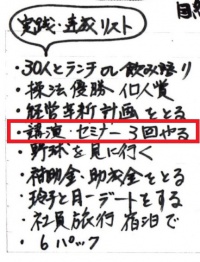 実践・達成リスト
・30人とランチor飲み語り
・操法優勝 個人賞
・経営革新計画をとる
・講演・セミナー 3回やる
・野球を見に行く
・補助金・助成金をとる
・玲子と月一デートをする
・社員旅行 宿泊で
・6パック